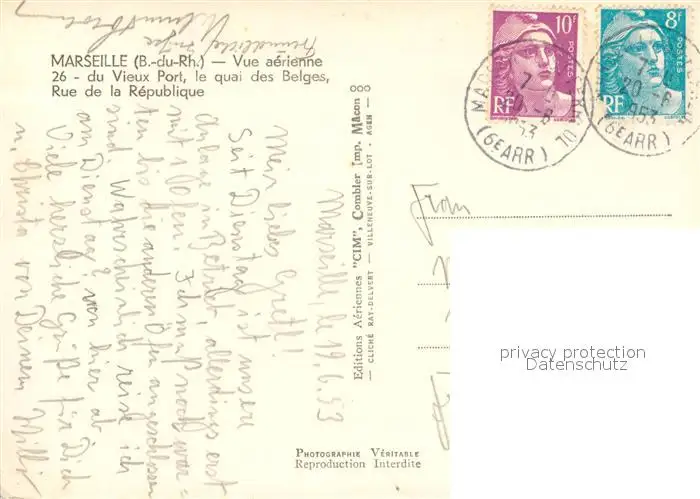 MARSEILLE (B.-du-Rh.) — Vue aérienne
26 - du Vieux Port, le quai des Belges,
Rue de la République
10F
POSTES
RF
8F
POSTES
RF
7-
20-6
1953
(6E ARR)
7-
20-6
1953
(6E ARR)
Marseille, le 19.6.53
Mein liebes Gretl!
Seit Dienstag ist unsere
Anlage in Betrieb, allerdings erst
mit 1 Ofen. Ich muß noch war=
ten bis die anderen Öfen angeschlossen
sind. Wahrscheinlich reise ich
am Dienstag von hier ab
Viele herzliche Grüße für Dich
u. Christa von Deinem Willi.
Editions Aériennes "CIM", Combier Imp. Mâcon
— CLICHÉ RAY-DELVERT — VILLENEUVE-SUR-LOT - AGEN —
Frau
PHOTOGRAPHIE VÉRITABLE
Reproduction Interdite
privacy protection
Datenschutz